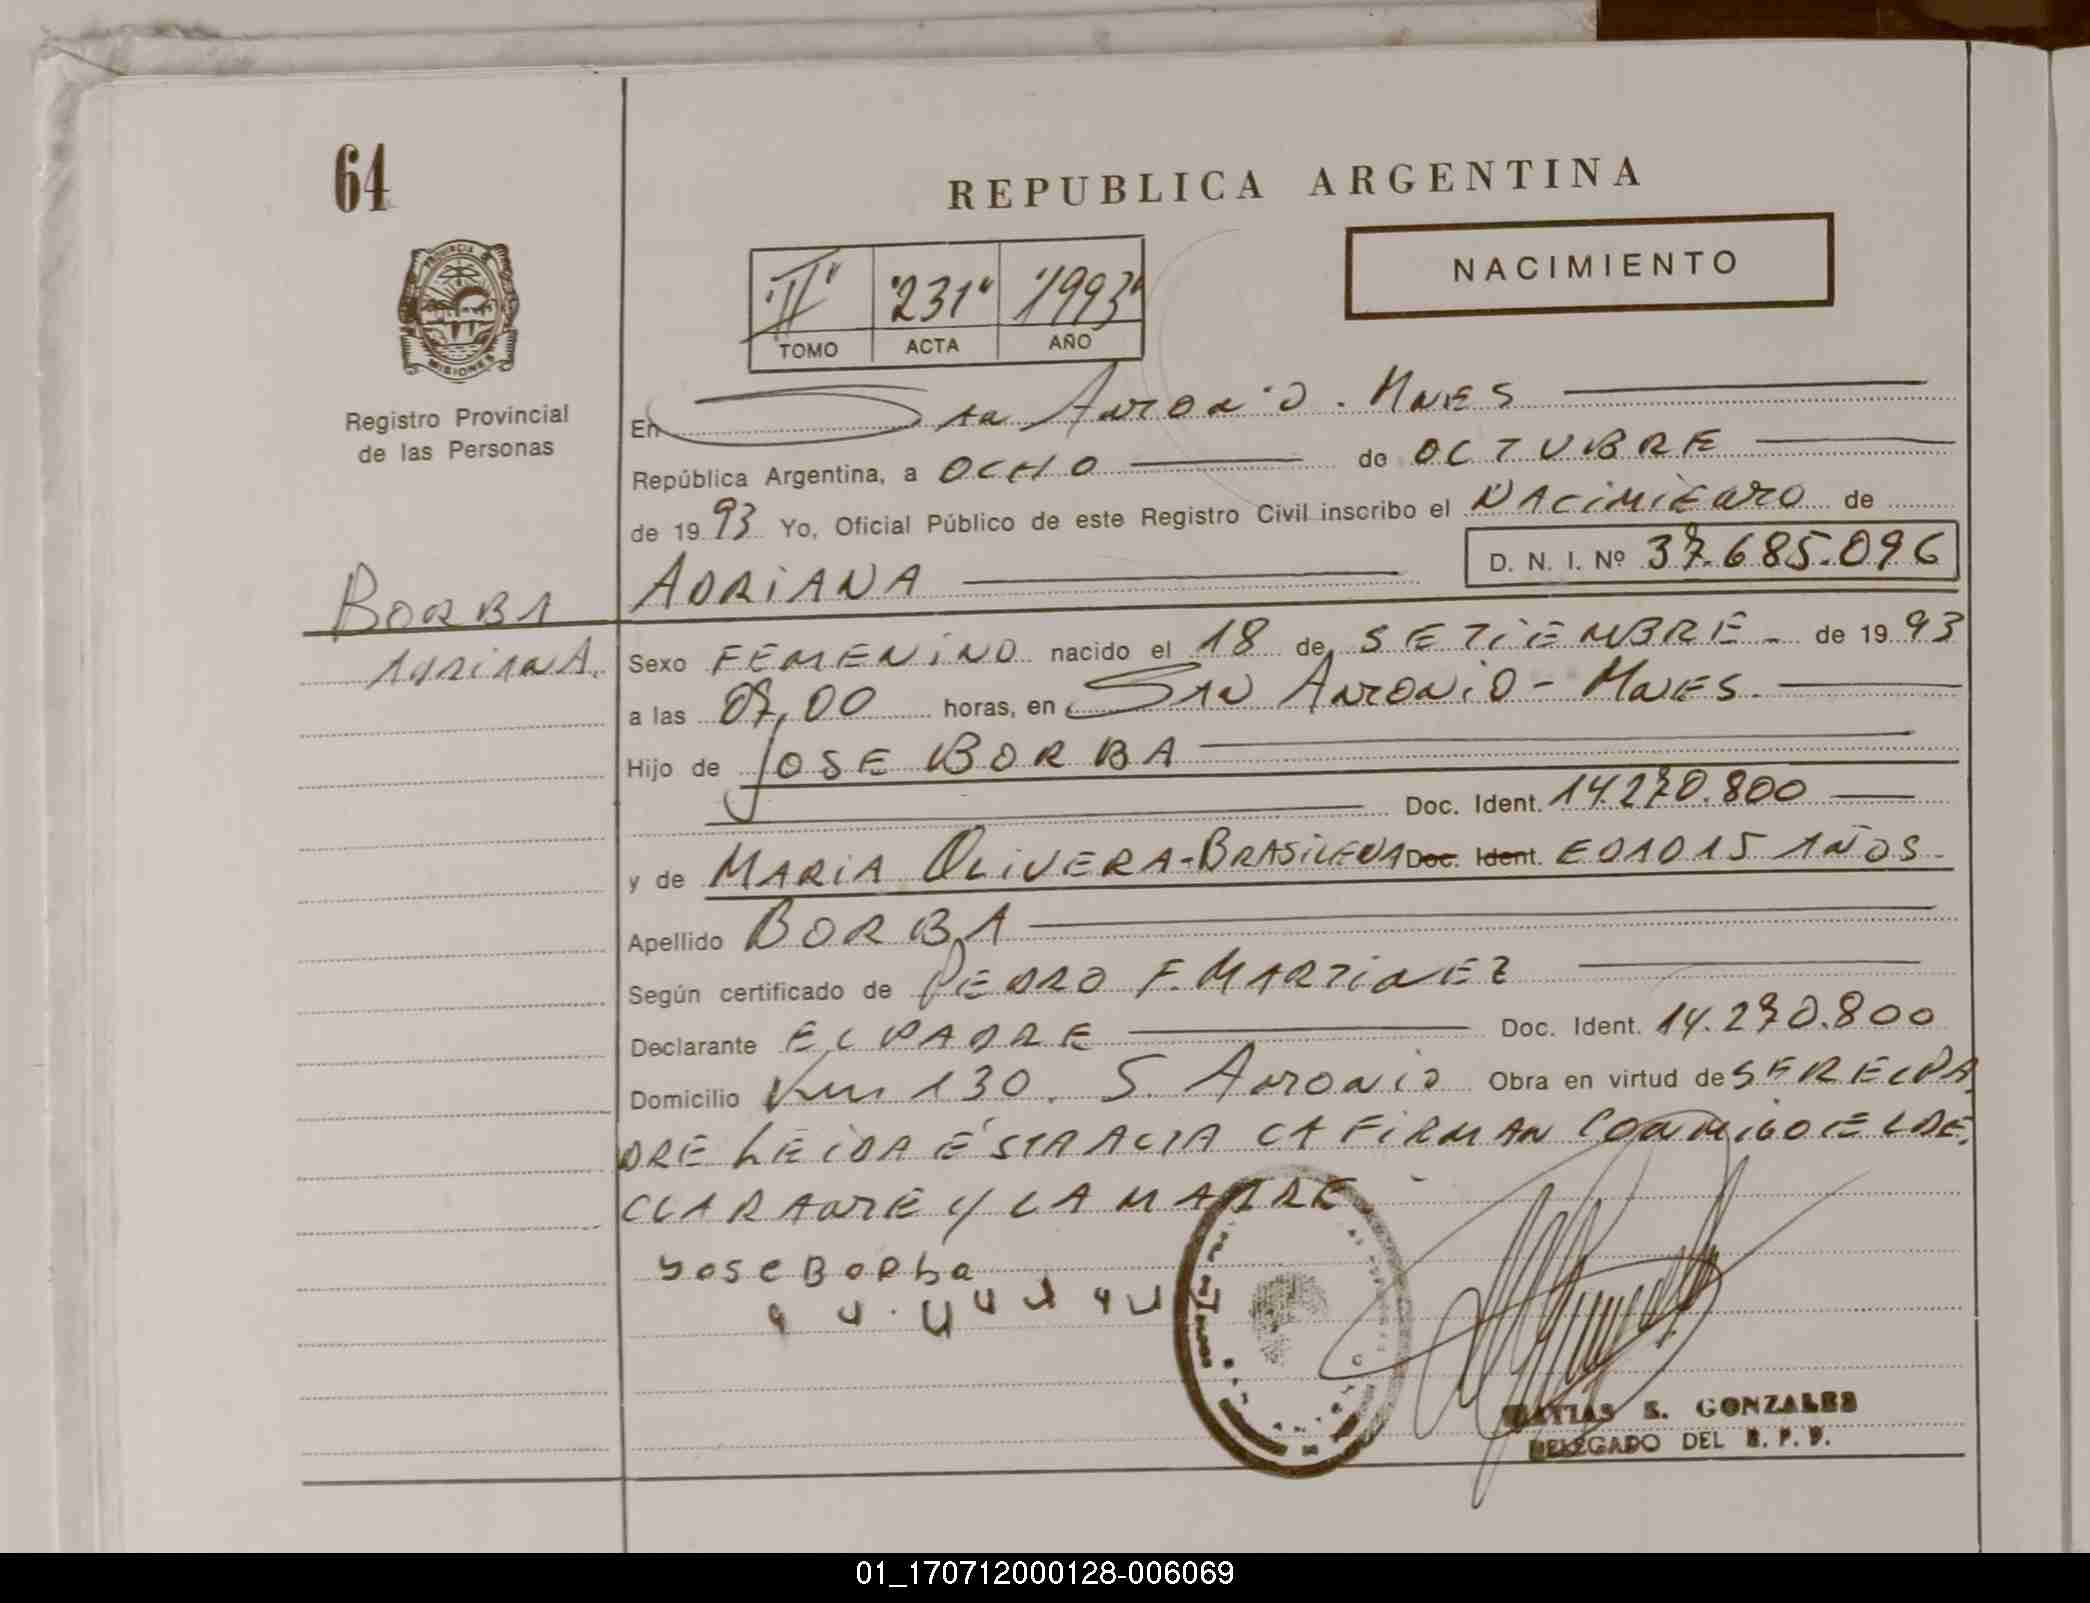 64
REPUBLICA ARGENTINA
NACIMIENTO
"II" "231" "1993"
TOMO ACTA AÑO
PROVINCIA DE
MISIONES
Registro Provincial
de las Personas
En San Antonio. Mnes
República Argentina, a OCHO de OCTUBRE
de 19 93 Yo, Oficial Público de este Registro Civil inscribo el NACIMIENTO de
ADRIANA D. N. I. Nº 37.685.096
BORBA
ADRIANA.
Sexo FEMENINO nacido el 18 de SETIEMBRE - de 19 93
a las 07,00 horas, en SAN ANTONIO - MNES.
Hijo de JOSE BORBA
Doc. Ident. 14.270.800
y de MARIA OLIVERA-BRASILENA Doc. Ident. EDAD 15 AÑOS -
Apellido BORBA
Según certificado de PEDRO F. MARTINEZ
Declarante EL PADRE Doc. Ident. 14.270.800
Domicilio Km 130. S. Antonio Obra en virtud de SER EL PA
DRE LEIDA ESTA ACTA LA FIRMAN CONMIGO EL DE
CLARANTE Y LA MADRE
Jose Borba
MATIAS S. GONZALES
DELEGADO DEL R. P. P.
01_170712000128-006069